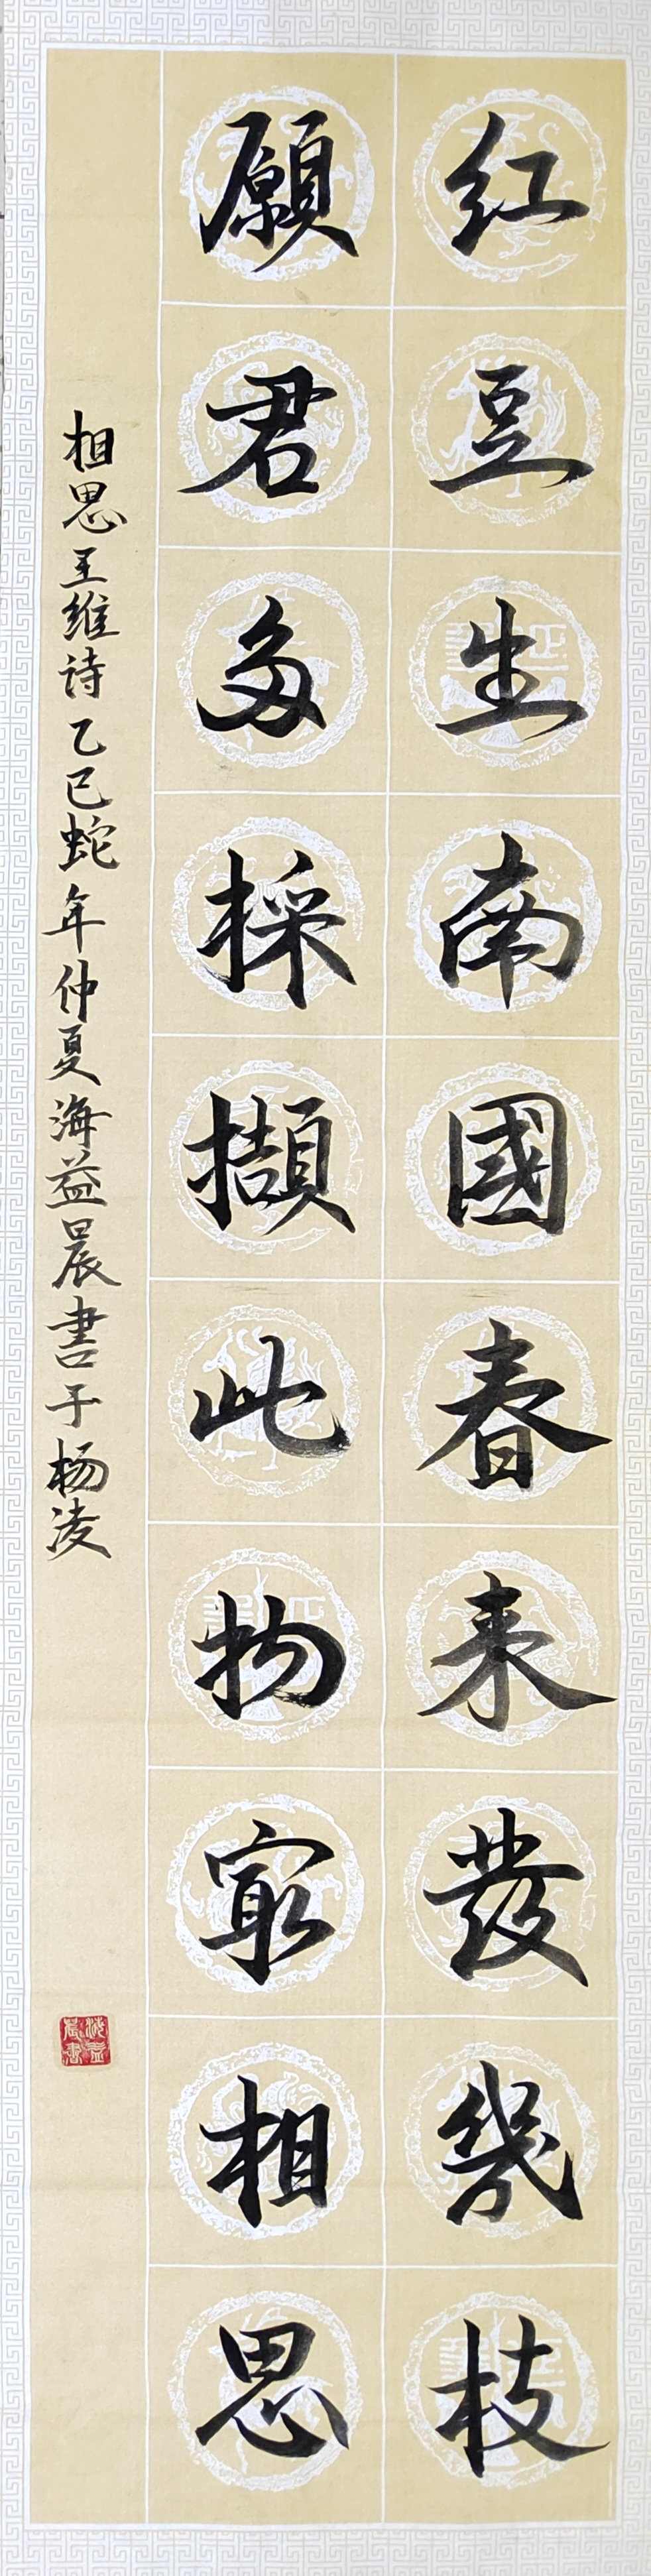 红豆生南國春来發幾枝
願君多採擷此物寂相思
相思王维诗乙巳蛇年仲夏海益晨書于杨凌
海益晨書